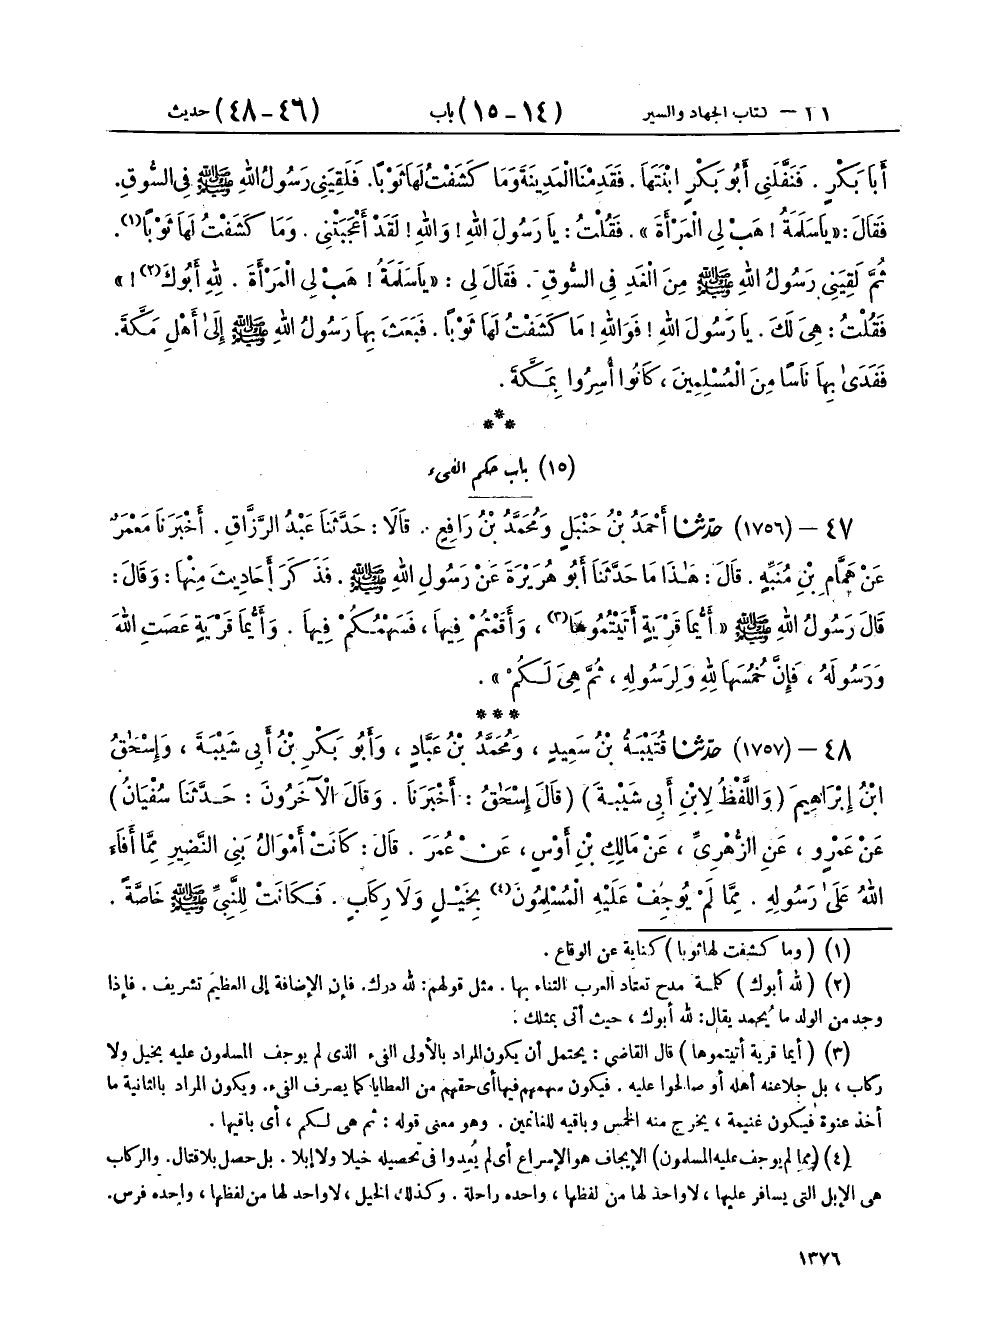 ٢١ – كتاب الجهاد والسير (١٤ – ١٥) باب (٤٦ – ٤٨) حديث
أَبَا بَكْرٍ . فَنَفَّلَنِي أَبُو بَكْرٍ ابْنَتَهَا . فَقَدِمْنَا الْمَدِينَةَ وَمَا كَشَفْتُ لَهَا ثَوْبًا. فَلَقِيَنِي رَسُولُ اللهِ ﷺ فِي السُّوقِ.
فَقَالَ : « يَا سَلَمَةُ ! هَبْ لِي الْمَرْأَةَ » . فَقُلْتُ : يَا رَسُولَ اللهِ ! وَاللهِ ! لَقَدْ أَعْجَبَتْنِي . وَمَا كَشَفْتُ لَهَا ثَوْبًا(١).
ثُمَّ لَقِيَنِي رَسُولُ اللهِ ﷺ مِنَ الْغَدِ فِي السُّوقِ . فَقَالَ لِي : « يَا سَلَمَةُ ! هَبْ لِي الْمَرْأَةَ . لِلهِ أَبُوكَ(٢) ! »
فَقُلْتُ : هِيَ لَكَ . يَا رَسُولَ اللهِ ! فَوَاللهِ ! مَا كَشَفْتُ لَهَا ثَوْبًا . فَبَعَثَ بِهَا رَسُولُ اللهِ ﷺ إِلَىٰ أَهْلِ مَكَّةَ.
فَفَدَىٰ بِهَا نَاسًا مِنَ الْمُسْلِمِينَ ، كَانُوا أُسِرُوا بِمَكَّةَ .
***
(١٥) باب حكم الفىء
٤٧ – (١٧٥٦) حدّثنا أَحْمَدُ بْنُ حَنْبَلٍ وَمُحَمَّدُ بْنُ رَافِعٍ . قَالَا : حَدَّثَنَا عَبْدُ الرَّزَّاقِ . أَخْبَرَنَا مَعْمَرٌ
عَنْ هَمَّامِ بْنِ مُنَبِّهٍ . قَالَ : هَـٰذَا مَا حَدَّثَنَا أَبُو هُرَيْرَةَ عَنْ رَسُولِ اللهِ ﷺ . فَذَكَرَ أَحَادِيثَ مِنْهَا : وَقَالَ :
قَالَ رَسُولُ اللهِ ﷺ « أَيُّمَا قَرْيَةٍ أَتَيْتُمُوهَا(٣) ، وَأَقَمْتُمْ فِيهَا ، فَسَهْمُكُمْ فِيهَا . وَأَيُّمَا قَرْيَةٍ عَصَتِ اللهَ
وَرَسُولَهُ ، فَإِنَّ خُمُسَهَا لِلهِ وَلِرَسُولِهِ ، ثُمَّ هِيَ لَكُمْ » .
***
٤٨ – (١٧٥٧) حدّثنا قُتَيْبَةُ بْنُ سَعِيدٍ ، وَمُحَمَّدُ بْنُ عَبَّادٍ ، وَأَبُو بَكْرِ بْنُ أَبِي شَيْبَةَ ، وَإِسْحَٰقُ
ابْنُ إِبْرَاهِيمَ ( وَاللَّفْظُ لِابْنِ أَبِي شَيْبَةَ ) ( قَالَ إِسْحَٰقُ : أَخْبَرَنَا . وَقَالَ الْآخَرُونَ : حَدَّثَنَا سُفْيَانُ )
عَنْ عَمْرٍو ، عَنِ الزُّهْرِيِّ ، عَنْ مَالِكِ بْنِ أَوْسٍ ، عَنْ عُمَرَ . قَالَ : كَانَتْ أَمْوَالُ بَنِي النَّضِيرِ مِمَّا أَفَاءَ
اللهُ عَلَىٰ رَسُولِهِ . مِمَّا لَمْ يُوجِفْ عَلَيْهِ الْمُسْلِمُونَ(٤) بِخَيْلٍ وَلَا رِكَابٍ . فَكَانَتْ لِلنَّبِيِّ ﷺ خَاصَّةً .
(١) ( وما كشفت لها ثوبا ) كناية عن الوقاع .
(٢) ( لله أبوك ) كلمة مدح تعتاد العرب الثناء بها . مثل قولهم : لله درك. فإن الإضافة إلى العظيم تشريف . فإذا
وجد من الولد ما يُحمد يقال : لله أبوك ، حيث أتى بمثلك .
(٣) ( أيما قرية أتيتموها ) قال القاضي : يحتمل أن يكون المراد بالأولى الفىء الذى لم يوجف المسلمون عليه بخيل ولا
ركاب ، بل جلا عنه أهله أو صالحوا عليه . فيكون سهمهم فيها أى حقهم من العطايا كما يصرف الفىء. ويكون المراد بالثانية ما
أخذ عنوة فيكون غنيمة ، يخرج منه الخمس وباقيه للغانمين . وهو معنى قوله : ثم هى لكم ، أى باقيها .
(٤) (مما لم يوجف عليه المسلمون) الإيجاف هو الإسراع أى لم يُعِدوا فى تحصيله خيلا ولا إبلا . بل حصل بلا قتال. والركاب
هى الإبل التى يسافر عليها ، لا واحد لها من لفظها ، واحده راحلة . وكذلك الخيل ، لا واحد لها من لفظها ، واحده فرس.
١٣٧٦